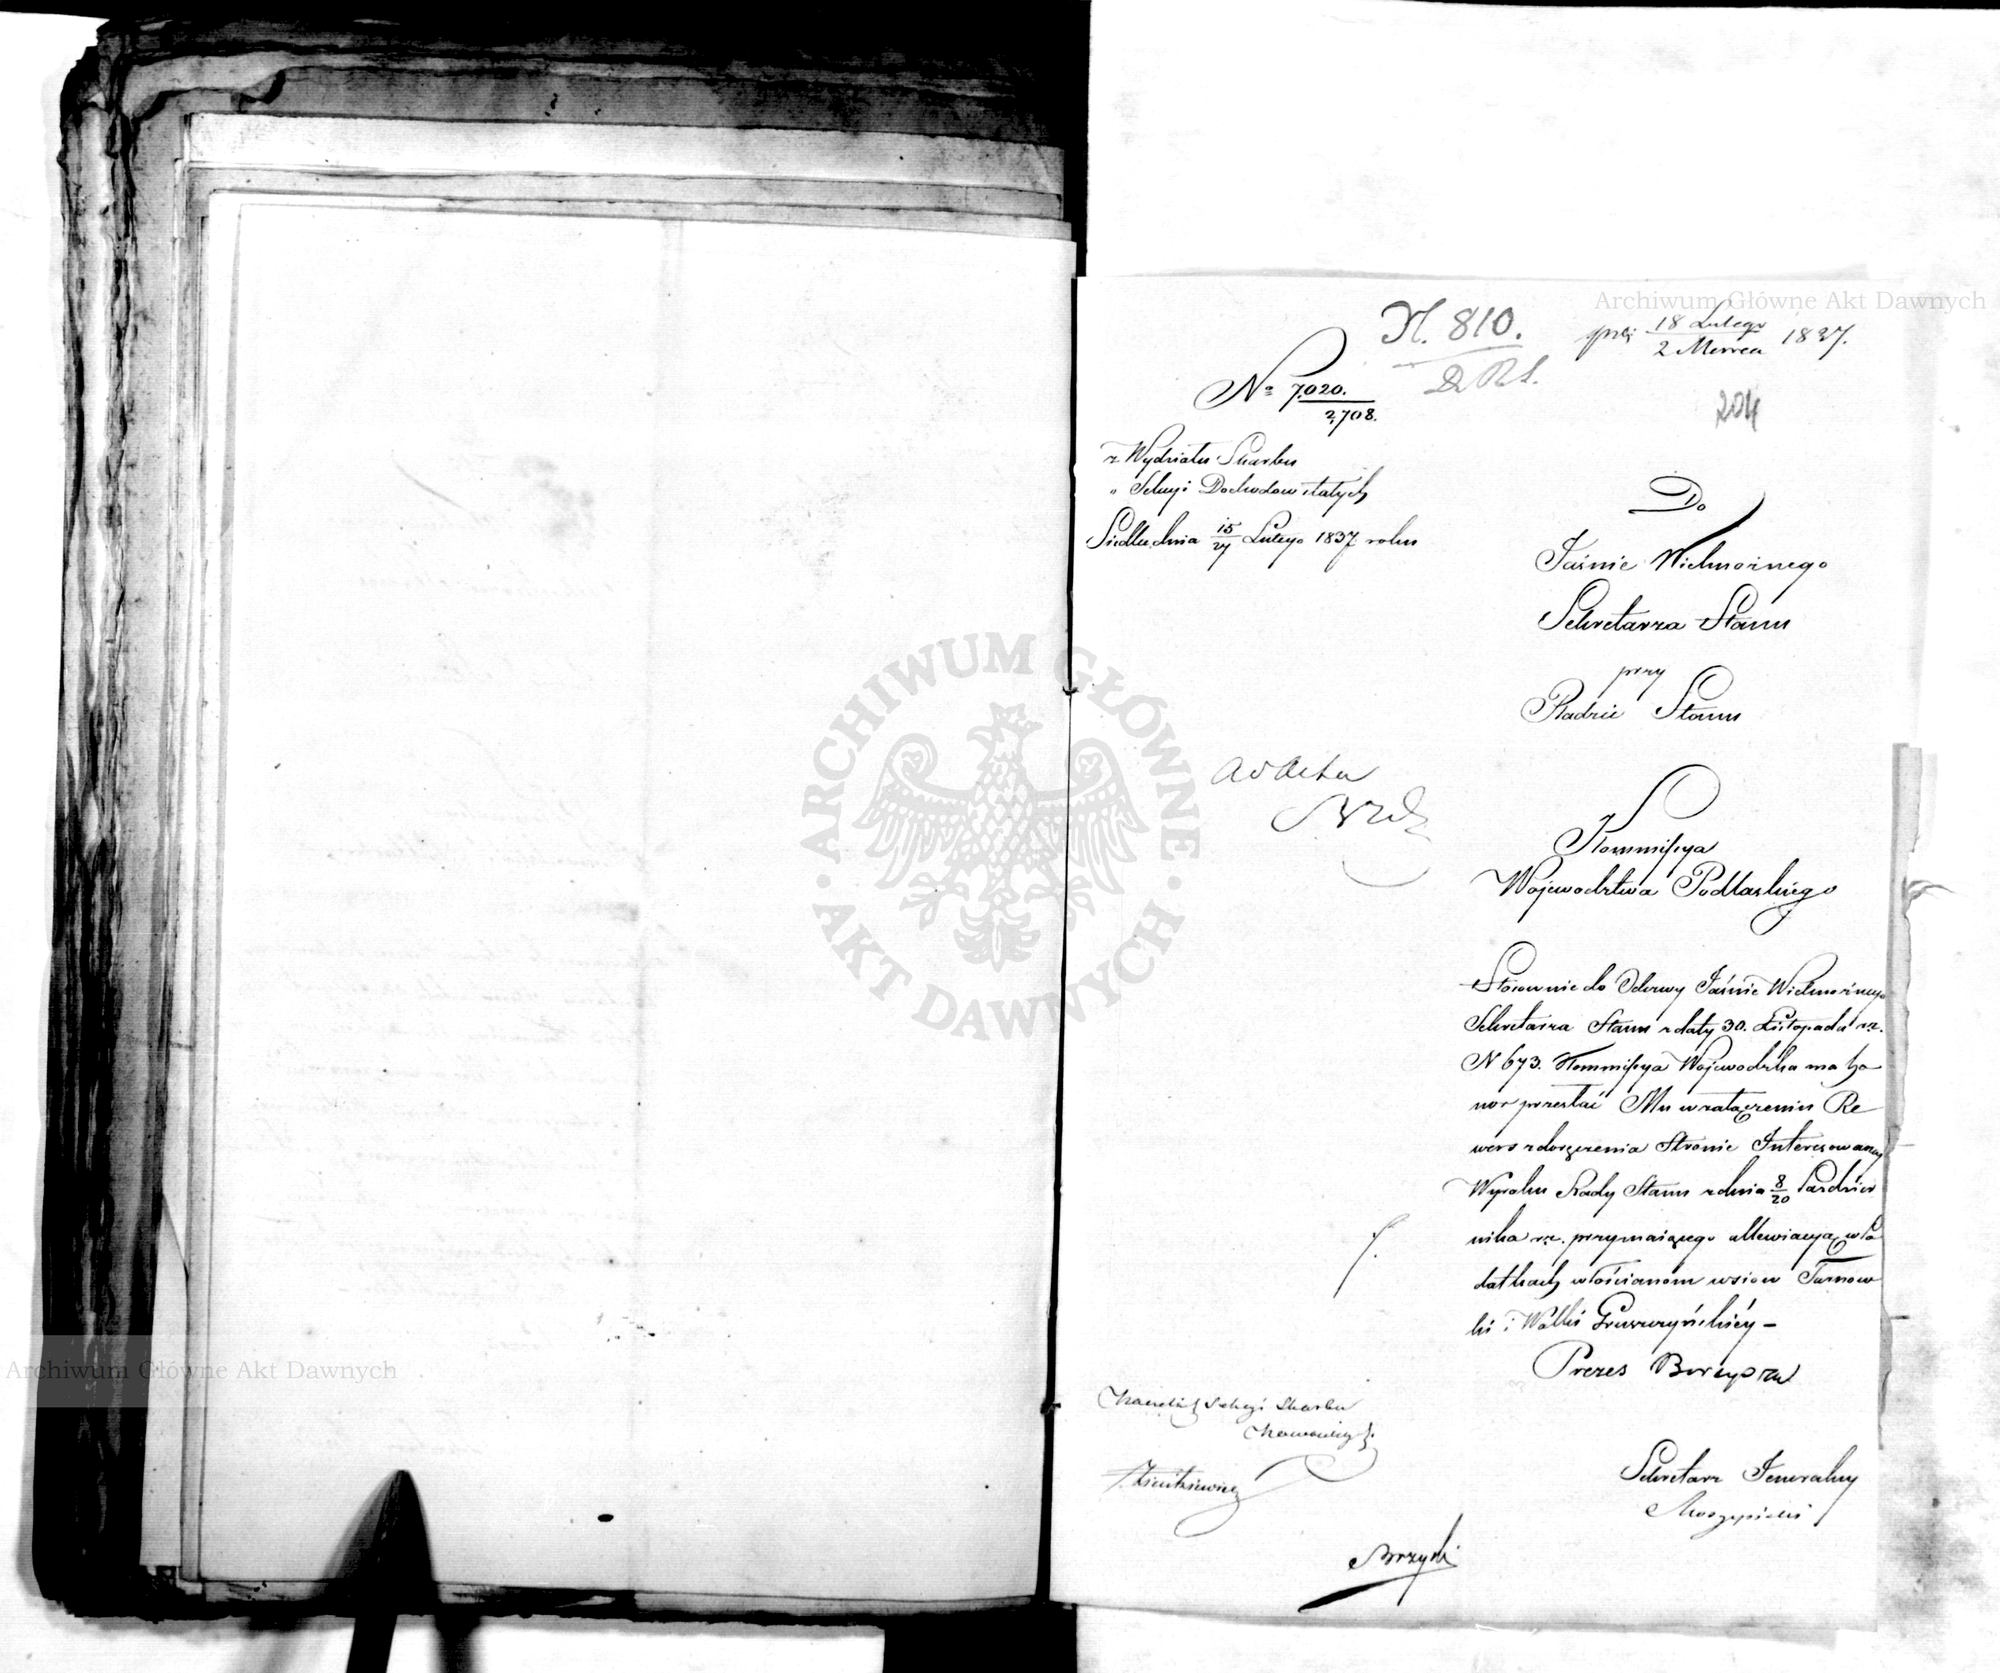 Archiwum Główne Akt Dawnych
N. 810.
18 Lutego
2 Marca 1837.
No 7,020.
2,708.
204
z Wydziału Skarbu
" Sekcyi Dochodow stałych
Siedlce dnia 15/27 Lutego 1837 roku
Do
Jaśnie Wielmożnego
Sekretarza Stanu
przy
Radzie Stanu
ad acta
Kommissya
Województwa Podlaskiego
Stosownie do Odezwy Jaśnie Wielmożnego
Sekretarza Stanu z daty 30. Listopada rz.
N 673. Kommissya Wojewodzka ma ho-
nor przesłać Mu w załączeniu Re-
wers z doręczenia Stronie Interessowaney
Wyroku Rady Stanu z dnia 8/20 Paździer
nika rz. przyznaiącego allewiacyą w Po
datkach włościanom wsiow Tarnow
ki i Wolki
Prezes
Sekcyi Skarbu
Sekretarz Jeneralny
ARCHIWUM GŁÓWNE
AKT DAWNYCH
Archiwum Główne Akt Dawnych